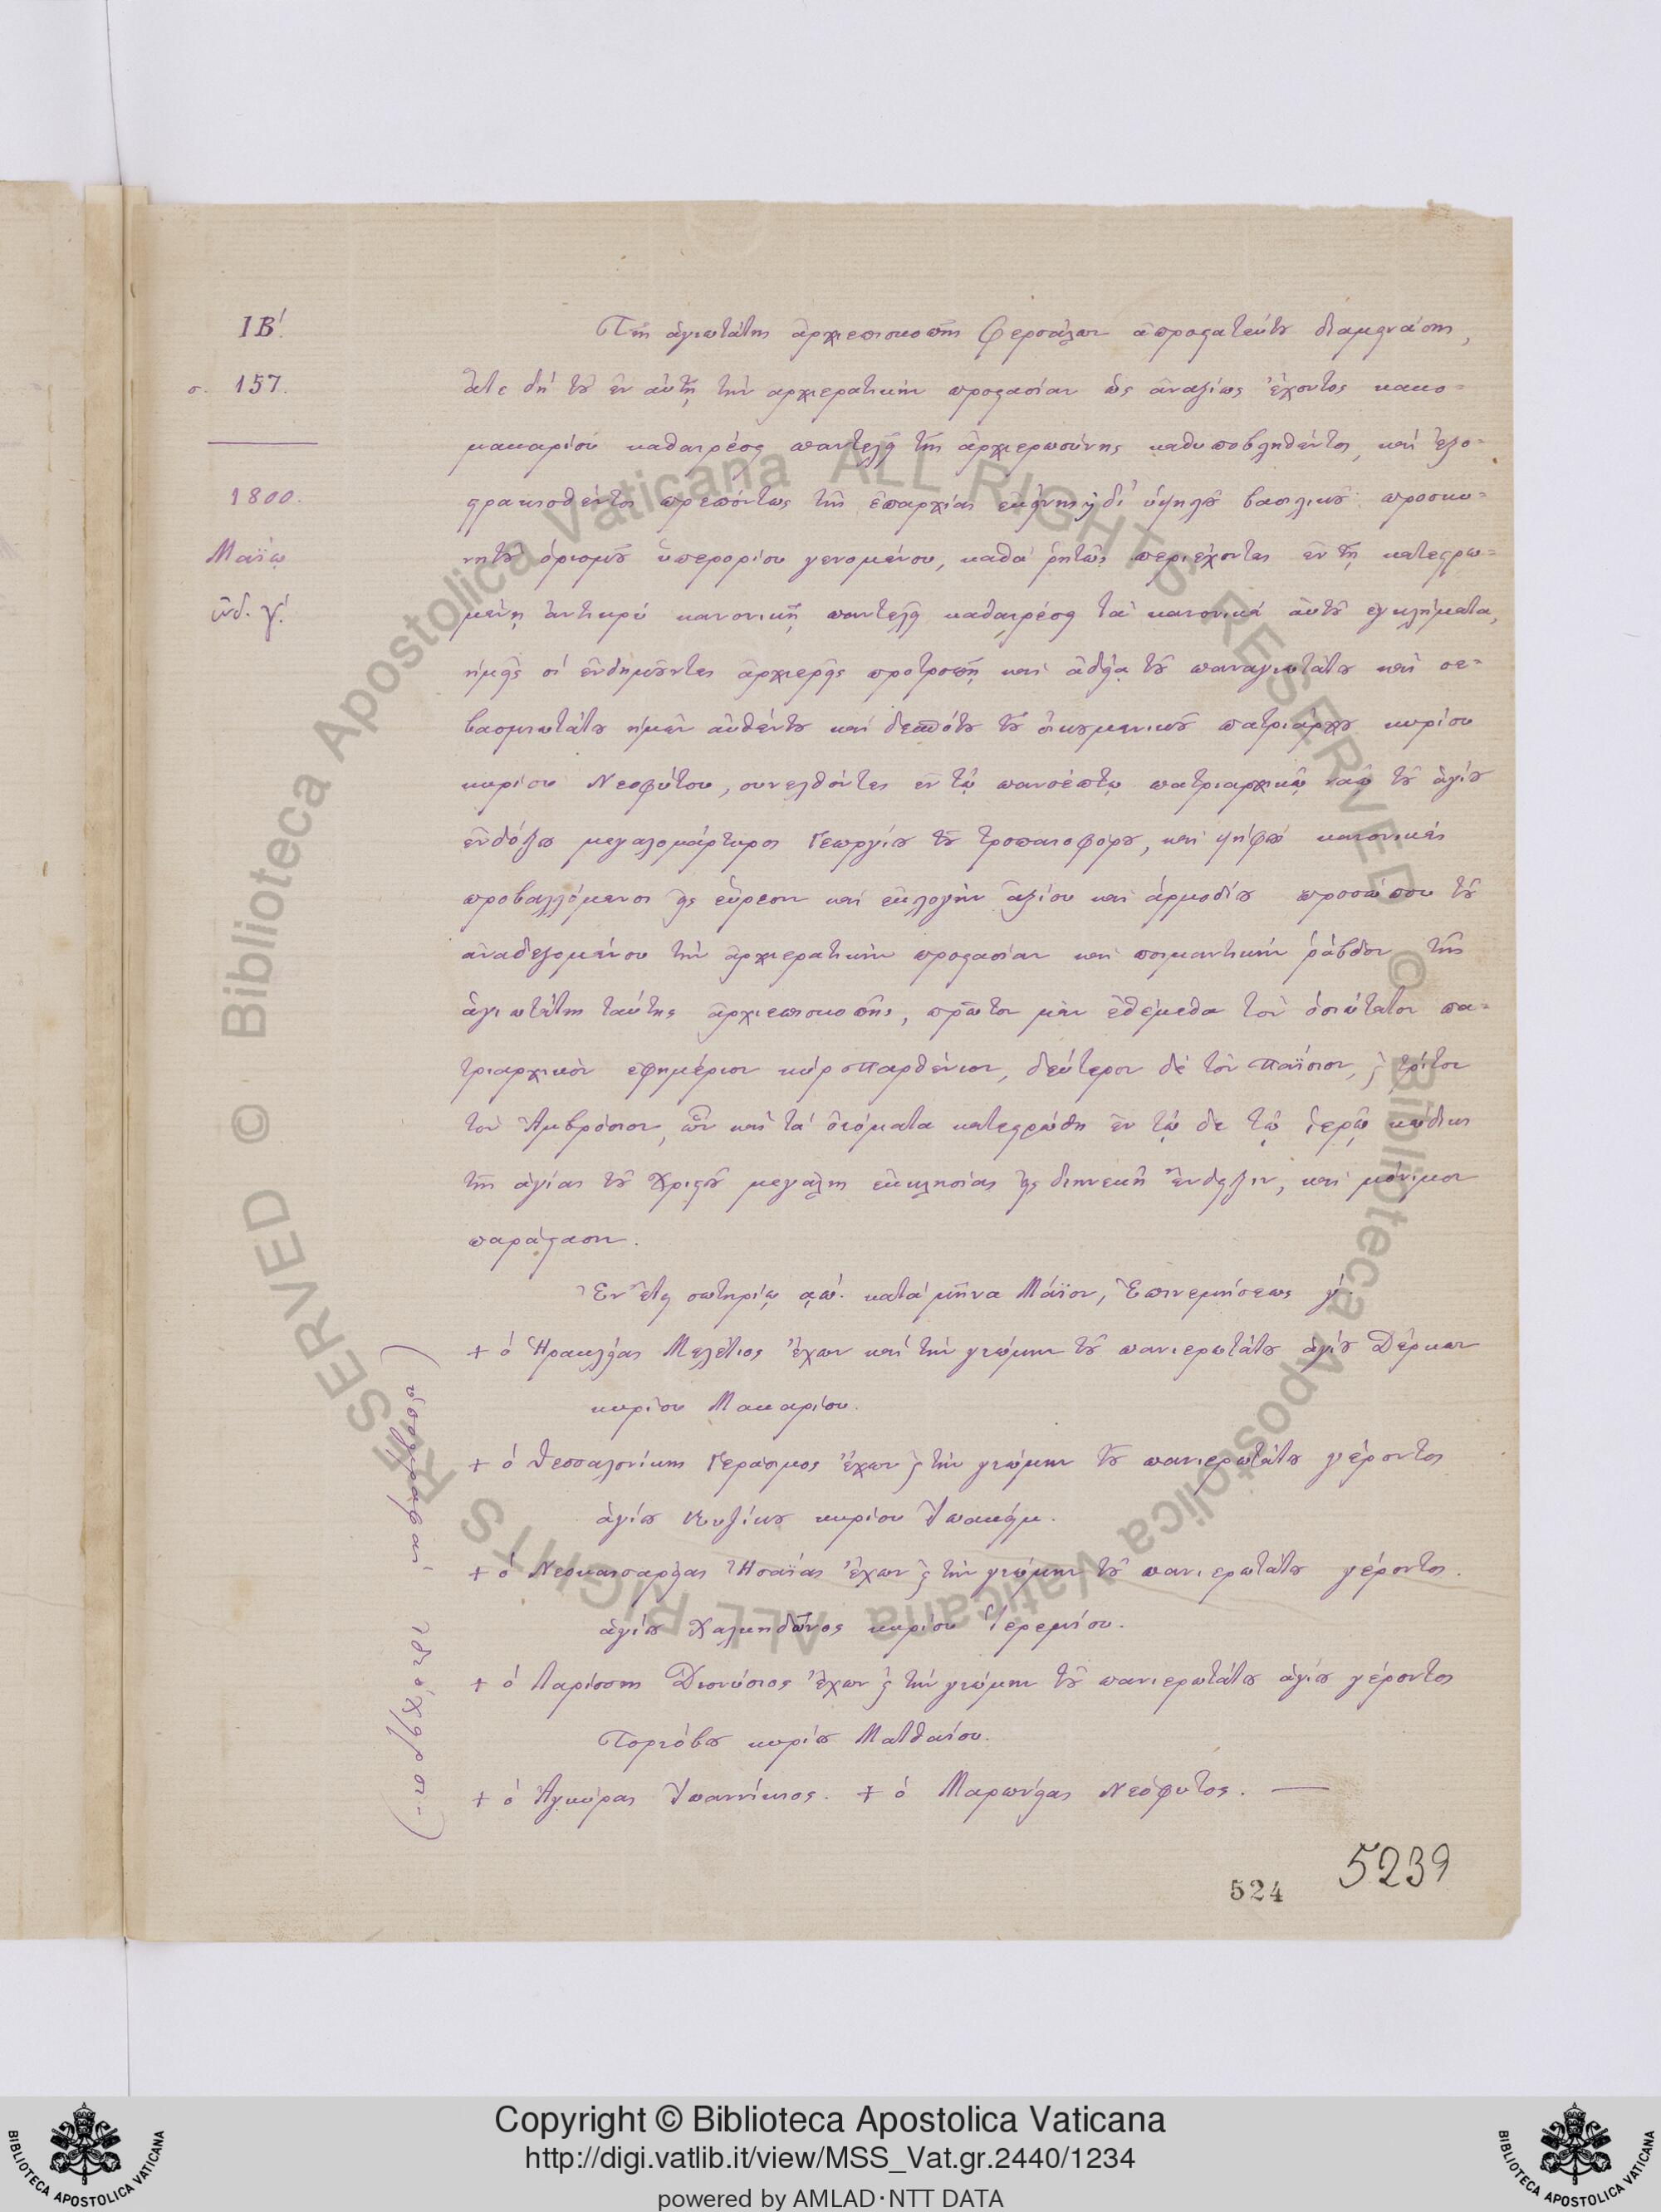 ΙΒ΄.
σ. 157.
1800.
Μαΐῳ
ἰνδ. γ΄.
Τῆς ἁγιωτάτης ἀρχιεπισκοπῆς Φερσάλων ἀπροστατεύτου διαμεινάσης,
ἅτε δὴ τοῦ ἐν αὐτῇ τὴν ἀρχιερατικὴν προστασίαν ὡς ἀναξίως ἔχοντος κακο-
μακαρίου καθαιρέσει παντελεῖ τῆς ἀρχιερωσύνης καθυποβληθέντος, καὶ ἐξο-
στρακισθέντος πρεπόντως τῆς ἐπαρχίας ἐκείνης δι' ὑψηλοῦ βασιλικοῦ προσκυ-
νητοῦ ὁρισμοῦ ὑπερορίου γενομένου, καθὰ ῥητῶς περιέχονται ἐν τῇ κατεστρω-
μένῃ ἀντικρὺ κανονικῇ παντελεῖ καθαιρέσει τὰ κανονικὰ αὐτοῦ ἐγκλήματα,
ἡμεῖς οἱ ἐνδημοῦντες ἀρχιερεῖς προτροπῇ καὶ ἀδείᾳ τοῦ παναγιωτάτου καὶ σε-
βασμιωτάτου ἡμῶν αὐθέντου καὶ δεσπότου τοῦ οἰκουμενικοῦ πατριάρχου κυρίου
κυρίου Νεοφύτου, συνελθόντες ἐν τῷ πανσέπτῳ πατριαρχικῷ ναῷ τοῦ ἁγίου
ἐνδόξου μεγαλομάρτυρος Γεωργίου τοῦ τροπαιοφόρου, καὶ ψήφους κανονικὰς
προβαλλόμενοι εἰς εὕρεσιν καὶ ἐκλογὴν ἀξίου καὶ ἁρμοδίου προσώπου τοῦ
ἀναδεξομένου τὴν ἀρχιερατικὴν προστασίαν καὶ ποιμαντικὴν ῥάβδον τῆς
ἁγιωτάτης ταύτης ἀρχιεπισκοπῆς, πρῶτον μὲν ἐθέμεθα τὸν ὁσιώτατον πα-
τριαρχικὸν ἐφημέριον κὺρ Παρθένιον, δεύτερον δὲ τὸν Παΐσιον, ϗ τρίτον
τὸν Ἀμβρόσιον, ὧν καὶ τὰ ὀνόματα κατεστρώθη ἐν τῷ δε τῷ ἱερῷ κώδικι
τῆς ἁγίας τοῦ Χριστοῦ μεγάλης ἐκκλησίας εἰς διηνεκῆ ἔνδειξιν, καὶ μόνιμον
παράστασιν.
Ἐν ἔτει σωτηρίῳ ͵αωʹ. κατὰ μῆνα Μάϊον, Ἐπινεμήσεως γ΄.
+ ὁ Ἡρακλείας Μελέτιος ἔχων καὶ τὴν γνώμην τοῦ πανιερωτάτου ἁγίου Δέρκων
κυρίου Μακαρίου.
+ ὁ Θεσσαλονίκης Γεράσιμος ἔχων ϗ τὴν γνώμην τοῦ πανιερωτάτου γέροντος
ἁγίου Κυζίκου κυρίου Ἰωακείμ.
+ ὁ Νεοκαισαρείας Ἡσαΐας ἔχων ϗ τὴν γνώμην τοῦ πανιερωτάτου γέροντος.
ἁγίου Χαλκηδῶνος κυρίου Ἱερεμίου.
+ ὁ Λαρίσσης Διονύσιος ἔχων ϗ τὴν γνώμην τοῦ πανιερωτάτου ἁγίου γέροντος
Τορνόβου κυρίου Ματθαίου.
+ ὁ Ἀγκύρας Ἰωαννίκιος. + ὁ Μαρωνείας Νεόφυτος. —
524 5239
© Biblioteca Apostolica Vaticana ALL RIGHTS RESERVED
© Biblioteca Apostolica Vaticana ALL RIGHTS RESERVED
Copyright © Biblioteca Apostolica Vaticana
http://digi.vatlib.it/view/MSS_Vat.gr.2440/1234
powered by AMLAD·NTT DATA
BIBLIOTECA APOSTOLICA VATICANA
BIBLIOTECA APOSTOLICA VATICANA